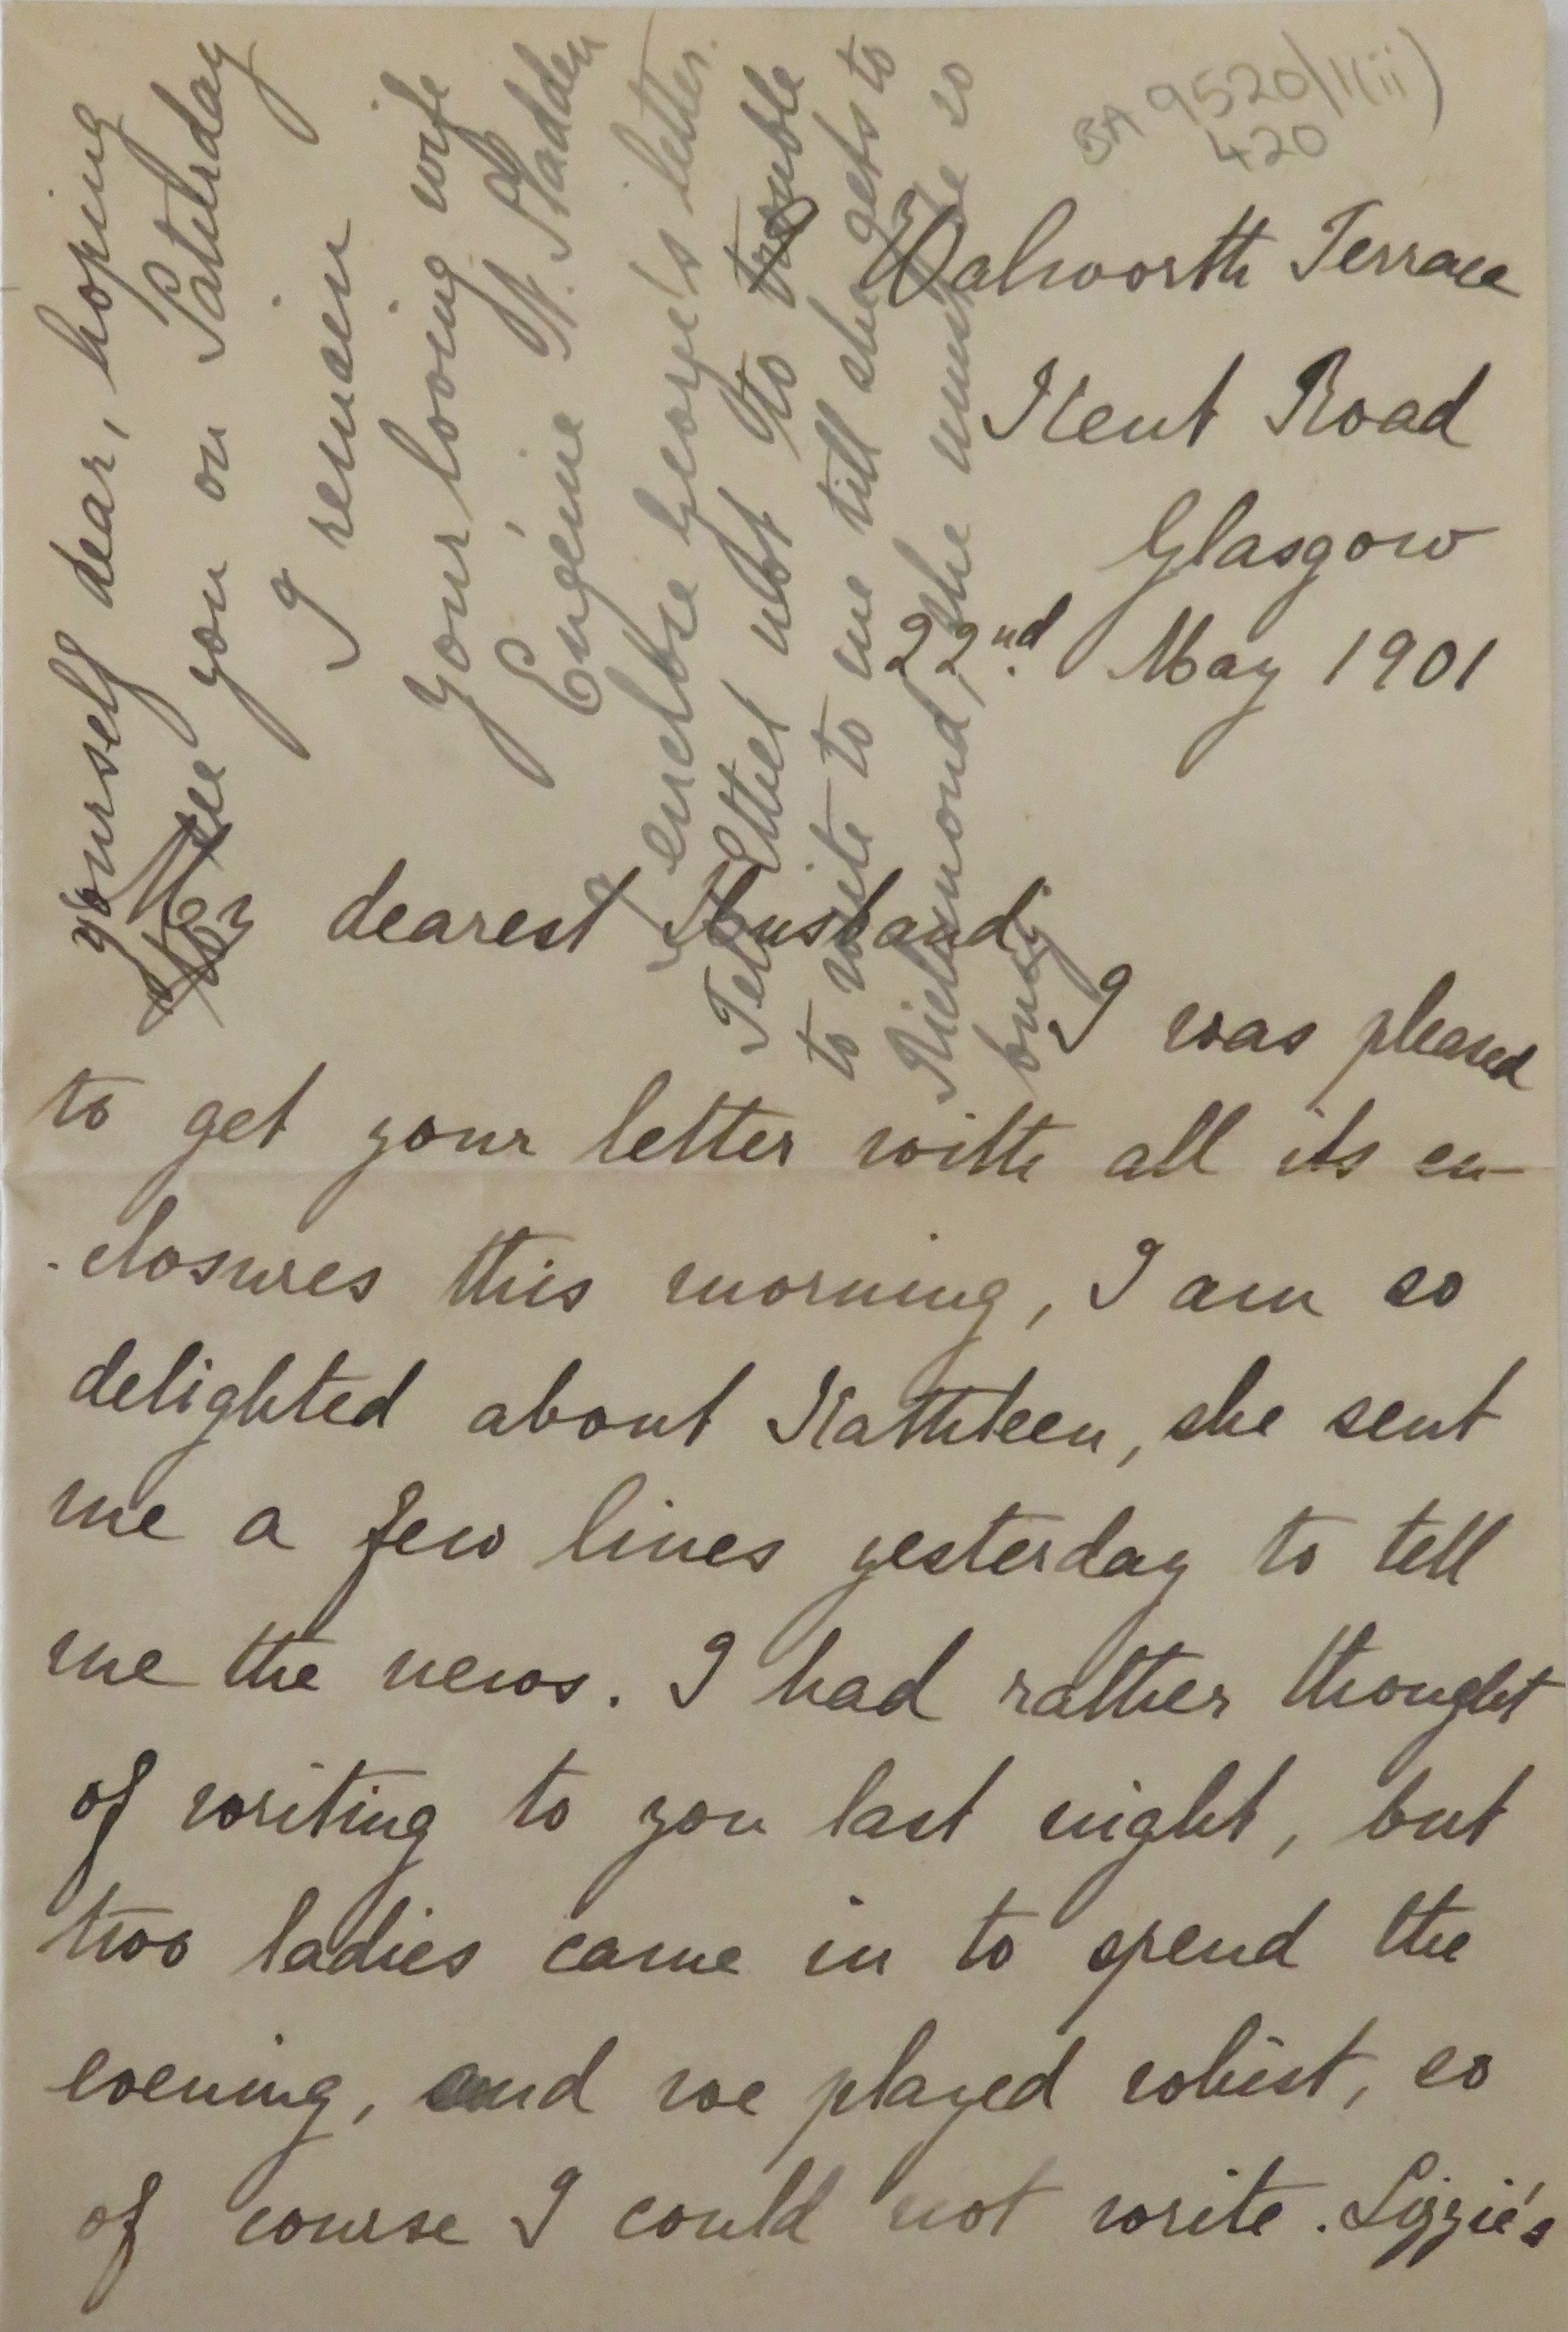 BA 9520/1(ii)
420
3 Walworth Terrace
Kent Road
Glasgow
22nd. May 1901
My dearest Husband,
I was pleased
to get your letter with all its en-
-closures this morning, I am so
delighted about Kathleen, she sent
me a few lines yesterday to tell
me the news. I had rather thought
of writing to you last night, but
two ladies came in to spend the
evening, and we played whist, so
of course I could not write. Lizzie's
yourself dear, hoping
to see you on Saturday
I remain
your loving wife
Eugénie H. Stadden
I enclose George's letter.
Tell Ethel not to trouble
to write to me till she gets to
Richmond, she must be so
busy